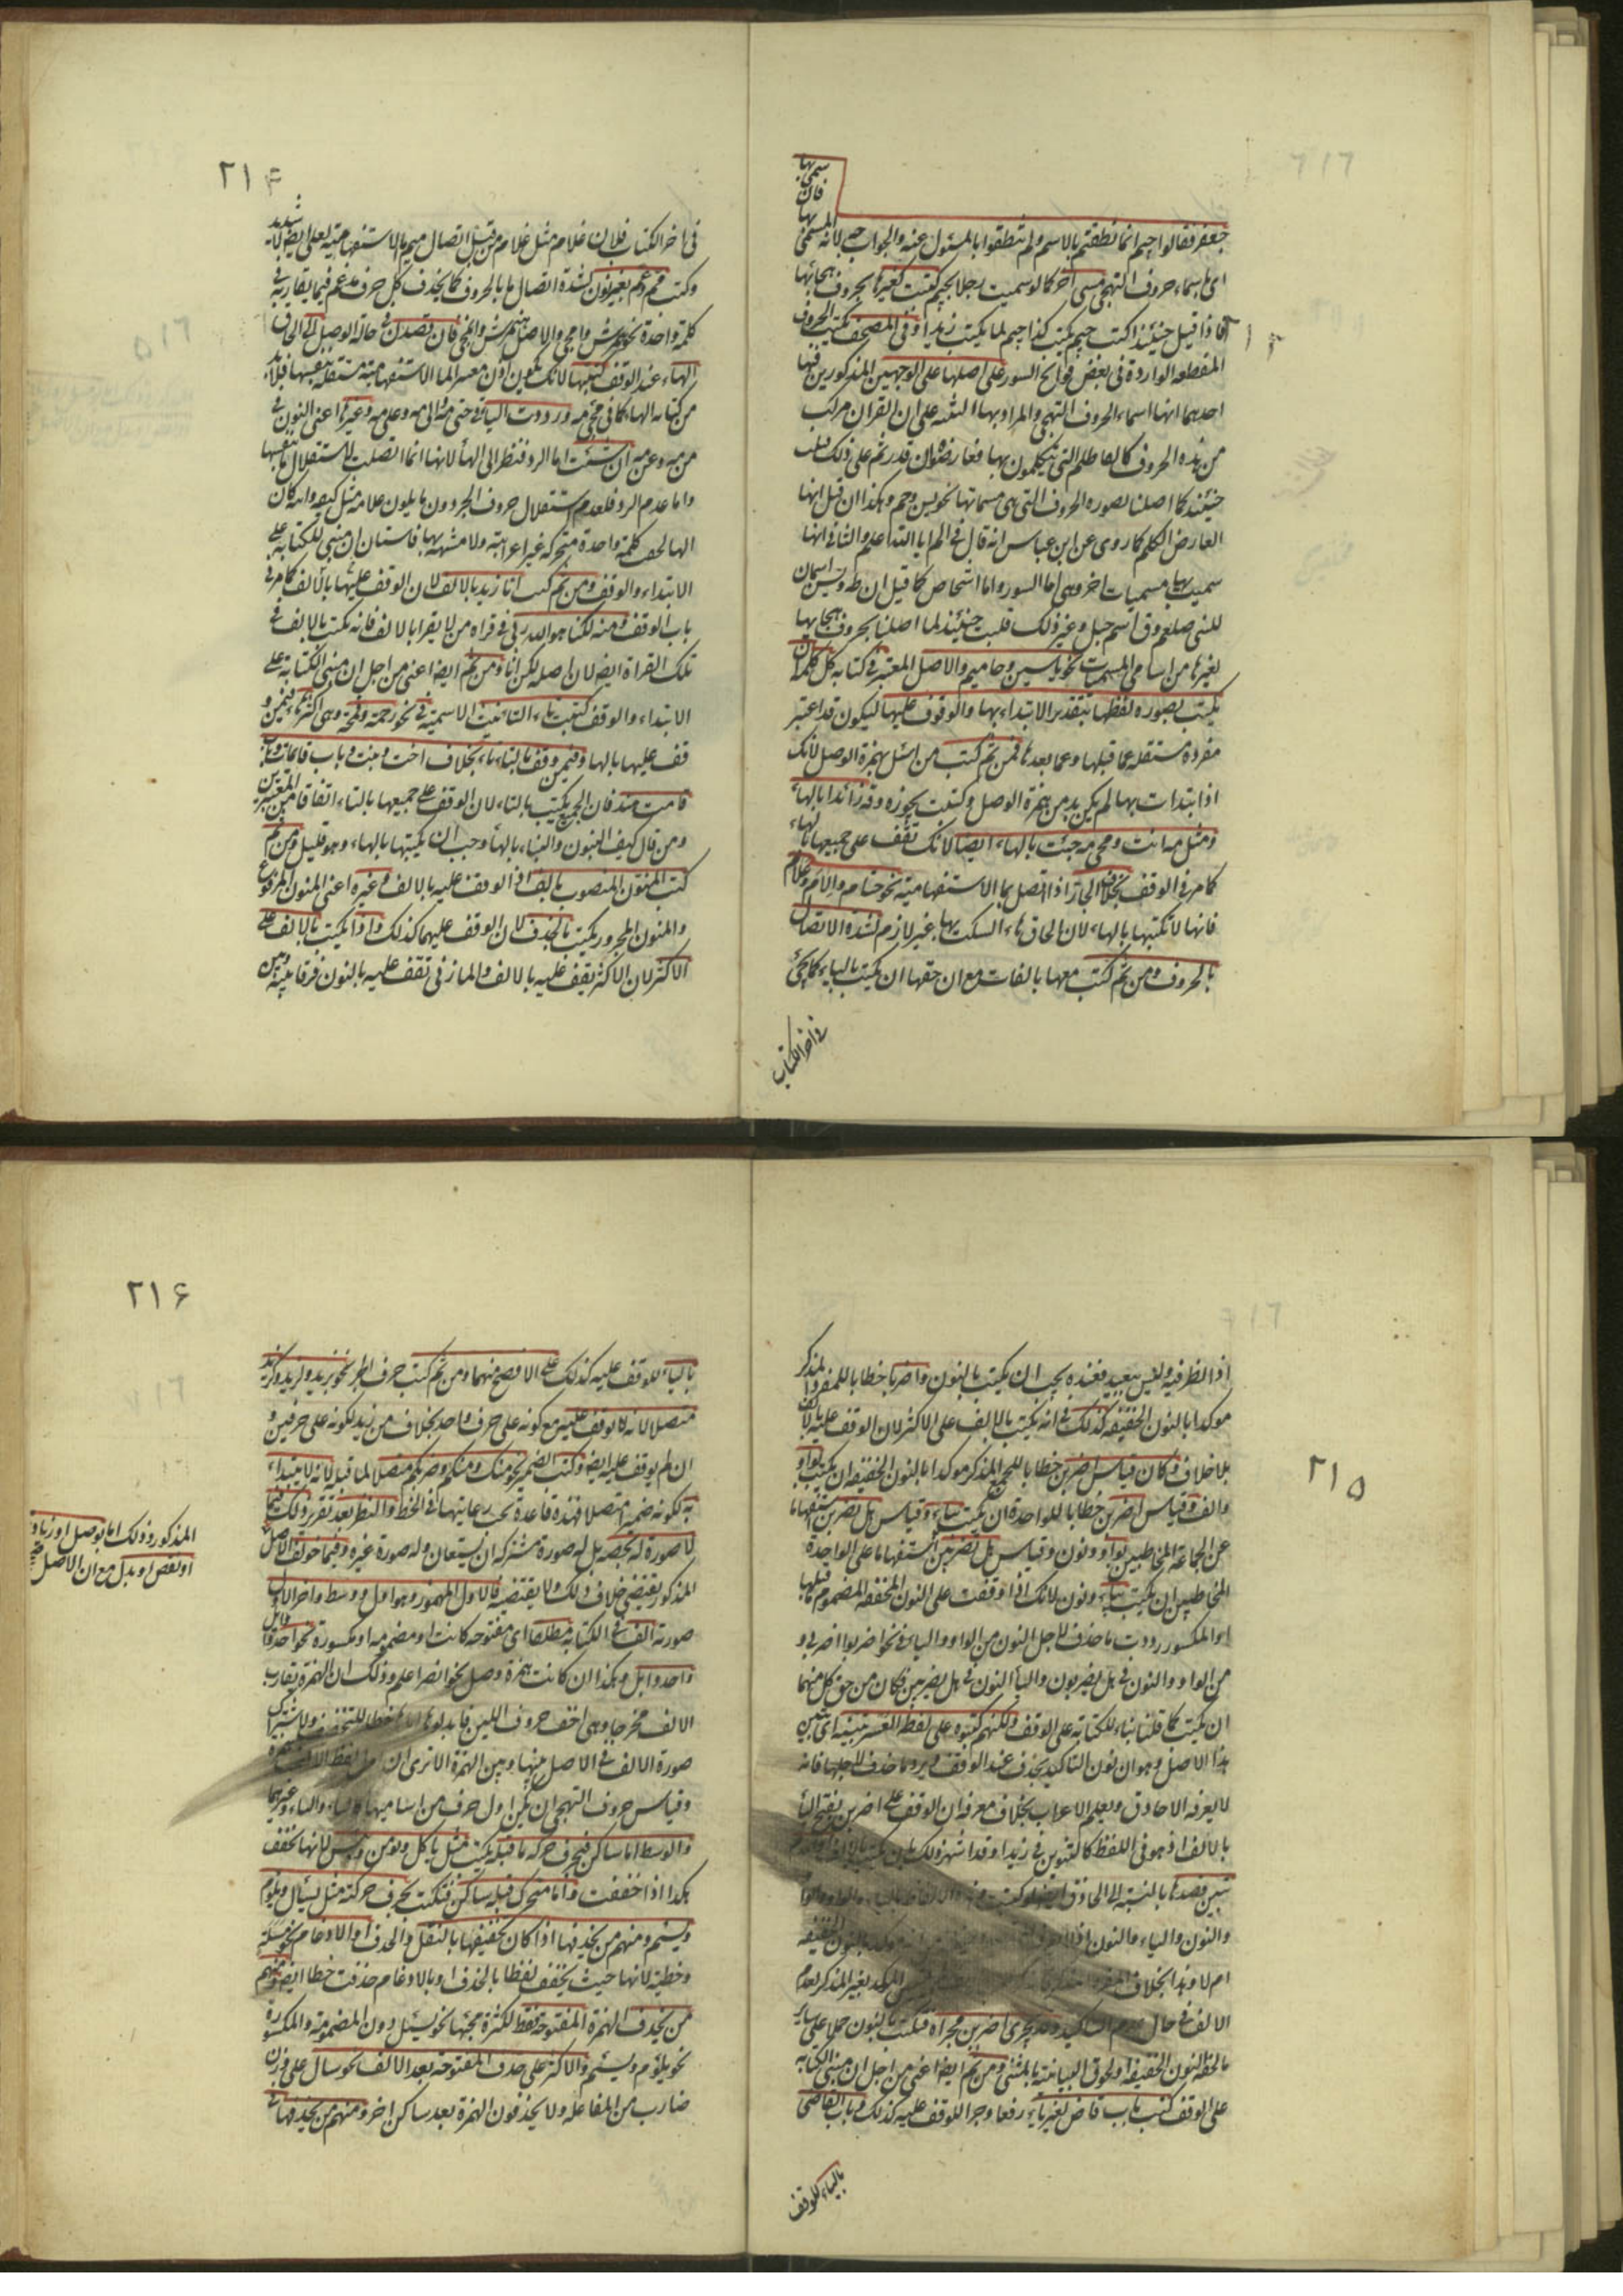 سمى بها
فان
جعفر فقالوا جيم انما نطقتم بالاسم ولم تنطقوا بالمسئول عنه والجواب جه لانه المسمى بها
اى باسماء حروف التهجى مسمى آخر كما لو سميت رجلا بجيم كتبت كغيرها بحروف هجائها
فاذا قيل حينئذ اكتب جيم يكتب كذا جيم لما يكتب زيد او فى المصحف يكتب الحروف
٢١٣
المقطعه الواردة فى بعض فواتح السور على اصلها على الوجهين المذكورين فيها
احدهما انها اسماء الحروف التهجى والمراد بها التنبيه على ان القران مركب
من هذه الحروف كالفاظكم التى تتكلمون بها فعارضوه ان قدرتم على ذلك فكتب
حينئذ كما اصلنا بصوره الحروف التى هى مسماتها نحو يس وحم وهكذا ان قيل انها
ابعاض الكلم كما روى عن ابن عباس انه قال فى الم انا الله اعلم والثانى انها
سميت بها مسميات اخر وهى اما السور واما اشخاص كما قيل ان طه ويس اسمان
للنبى صلعم وق اسم جبل وغير ذلك فكتبت حينئذ لما اصلنا بحروف هجايها
لغيرها من اسامى المسميات نحو ياسين وحاميم والاصل المعتبر فى كتابه كل كلمة ان
يكتب بصوره لفظها بتقدير الابتداء بها والوقوف عليها ليكون قد اعتبر
مفردة مستقله عما قبلها وعما بعدها فمن ثم كتب من ابنك بهمزة الوصل لانك
اذا ابتدات بها لم يكن بد من همزة الوصل وكتبت نحو ره وقه زائدا بالهاء
ومثل مه انت ومجى مه جئت بالهاء ايضا لانك تقف على جميعها بالهاء
كما مر فى الوقف بخلاف الجار اذا اتصل بما الاستفهامية نحو حتام والام وعلام
فانها لا تكتبها بالهاء لان الحاق هاء السكت بها غير لازم لشدة الاتصال
بالحروف ومن ثم كتبت معها بالفات مع ان حقها ان يكتب بالياء كما يجئ
فى اخر الكتاب
٢١۴
فى اخر الكتاب فلان غلام مثل غلام من قبيل اتصال ميم بالاستفهامية لعلى ايضا لانه شديد
وكتب مم وعم بغير نون لشدة اتصال ما بالحروف كما يحذف كل حرف مدغم فيما يقاربه فى
كلمة واحدة نحو همرش وامحى والاصل هنمرش وانمحى فان قصدت فى حالة الوصل الى الحاق
الهاء عند الوقف كتبتها لانك تكون اذن معتبر الما الاستفهامية مستقله بنفسها فلابد
من كتابه الهاء كما فى مجئ مه ورددت الياء فى حتى مه والى مه وعلى مه وغيرها اعنى النون فى
من مه وعن مه ان شئت اما الرد فنظر الى الهاء لانها انما اتصلت لاستقلال ما بنفسها
واما عدم الرد فلعدم استقلال حروف الجر دون ما يلون علامة مثل كيمه وان كان
الها لحق كلمة واحدة متحركه غير اعرابيه ولا مشبهه بها فاستبان ان مبنى الكتابه على
الابتداء والوقف ومن ثم كتب انا زيد بالالف لان الوقف عليها بالالف كما مر فى
باب الوقف ومنه لكنا هو الله ربى فى قراة من لا يقرا بالالف فانه يكتب بالالف فى
تلك القراة ايضا لان اصله لكن انا ومن ثم ايضا اعنى من اجل ان مبنى الكتابة على
الابتداء والوقف كتبت تاء التانيث الاسمية فى نحو رحمة وقمحة وهى اكثر هاء فيمن
وقف عليها بالهاء وفيمن وقف بالتاء تاء بخلاف اخت وبنت وباب قائمات وباب
قامت هند فان الجميع يكتب بالتاء لان الوقف على جميعها بالتاء اتفاقا من المعتبرين
ومن قال كيف البنون والبناه بالهاء وجب ان يكتبها بالهاء وهو قليل ومن ثم
كتب المنون المنصوب بالالف اذ الوقف عليه بالالف وغيره اعنى المنون المرفوع
والمنون المجرور يكتب بالحذف لان الوقف عليهما كذلك واذا يكتب بالالف على
الاكثر لان الاكثر يقف عليه بالالف والمازنى تقف عليه بالنون فرقا بينه وبين
اذا الظرفيه وليس ببعيد فعنده يجب ان يكتب بالنون واضربا خطابا للمفرد المذكر
موكدا بالنون الخفيفه كذلك فى انه يكتب بالالف على الاكثر لان الوقف عليه بالالف
بلا خلاف وكان قياس اضربن خطابا للجمع المذكر موكدا بالنون الخفيفه ان يكتب بواو
والف وقياس اضربن خطابا للواحدة ان يكتب بياء وقياس هل تضربن استفهاما
٢١۵
عن الجماعه المخاطبين بواو ونون وقياس هل تضربن استفهاما على الواحدة
المخاطبه ان يكتب بياء ونون لانك اذا وقفت على النون المخففه المضموم ما قبلها
او المكسور رددت ما حذف لاجل النون من الواو والياء فى نحو اضربوا اضربى و
من الواو والنون فى هل يضربون والياء النون فى هل يضربين فكان من حق كل منهما
ان يكتب كما قلنا بناء للكتابه على الوقف ولكنهم كتبوه على لفظه لعسر تبينه اى تبين
هذا الاصل وهو ان نون التاكيد يحذف عند الوقف ويرد ما حذف لاجلها فانه
لا يعرفه الا حاذق بعلم الاعراب بخلاف معرفه ان الوقف على اضربن بفتح الباء
بالالف اذ هو فى اللفظ كالتنوين فى زيدا وقد اشتهر ذلك
تبين قصدها بالنسبة الى الحاذق ايضا
والنون والياء والنون
ام لا وهذا بخلاف المفرد
الالف فى حال عدم التاكيد وقد يجرى اضربن مجراه فتكتب بالنون حملا على ساير
ما لحقه النون الخفيفه ولحوق البيانية بالمثنى ومن ثم ايضا اعنى من اجل ان مبنى الكتابه
على الوقف كتب باب قاض بغير ياء رفعا وجرا للوقف عليه كذلك وباب القاضى
بالياء للوقف
٢١۶
بالياء للوقف عليه كذلك على الافصح فيهما ومن ثم كتب حرف الجر نحو بزيد ولزيد وكزيد
متصلا لانه لا يوقف عليه مع كونه على حرف واحد بخلاف من زيد لكونه على حرفين و
ان لم يوقف عليه ايضا وكتب الضمير نحو منك ومنكم وضربكم متصلا لما قبله لانه لا يبتداء
به لكونه ضميرا متصلا فهذه قاعدة يجب رعايتها فى الخط والنظر بعد تقرر ذلك فيما
لا صورة له تخصه بل له صورة مشتركه ان يستعان وله صورة غيره وفيما خولف الاصل
المذكور وذلك اما بوصل او زيادة
او نقص او بدل مع ان الاصل
المذكور يقتضى خلاف ذلك ولا يقتضيه فالاول المهموز وهو اول ووسط واخر الاول
صورته الف فى الكتابة مطلقا اى مفتوحه كانت او مضمومه او مكسورة نحو احد وابل
واحد وابل وهكذا ان كانت همزة وصل نحو انصر اعلم وذلك ان الهمزة تقارب
الالف مخرجا وهى اخف حروف اللين فابدلوها
صورة الالف فى الاصل بينها وبين الهمزة الا ترى ان
وقياس حروف التهجى ان يكون اول حرف من اساميها
والوسط اما ساكن فبحرف حركه ما قبله يكتب مثل ياكل ويؤمن وبئس لانها تخفف
هكذا اذا خففت واما متحرك قبله ساكن فتكتب بحرف حركته مثل يسال ويلؤم
ويسئم ومنهم من يحذفها اذا كان تخفيفها بالنقل والحذف او الادغام نحو مسلة
وخطية لانها حيث يخفف لفظا بالحذف او بالادغام حذفت خطا ايضا ومنهم
من يحذف الهمزة المفتوحة فقط لكثرة مجئها نحو يسئل دون المضمومة والمكسورة
نحو يلؤم ويسئم والاكثر على حذف المفتوحة بعد الالف نحو سال على وزن
ضارب من المفاعله ولا يحذفون الهمزة بعد ساكن اخر ومنهم من يحذفها فى